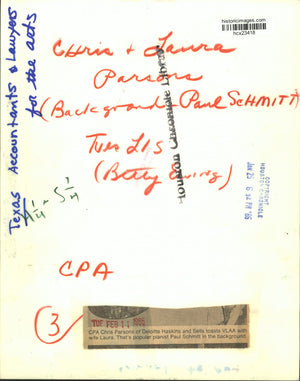 historicimages.com
hcx23418
Texas Accountants & Lawyers
for the arts
Chris + Laura
Parsons
(Background - Paul SCHMITT)
Houston Chronicle Library
(Betty Ewing)
COPYRIGHT
HOUSTON CHRONICLE
CPA
3
TUE FEB 11 1986
CPA Chris Parsons of Deloitte Haskins and Sells toasts VLAA with
wife Laura. That's popular pianist Paul Schmitt in the background.